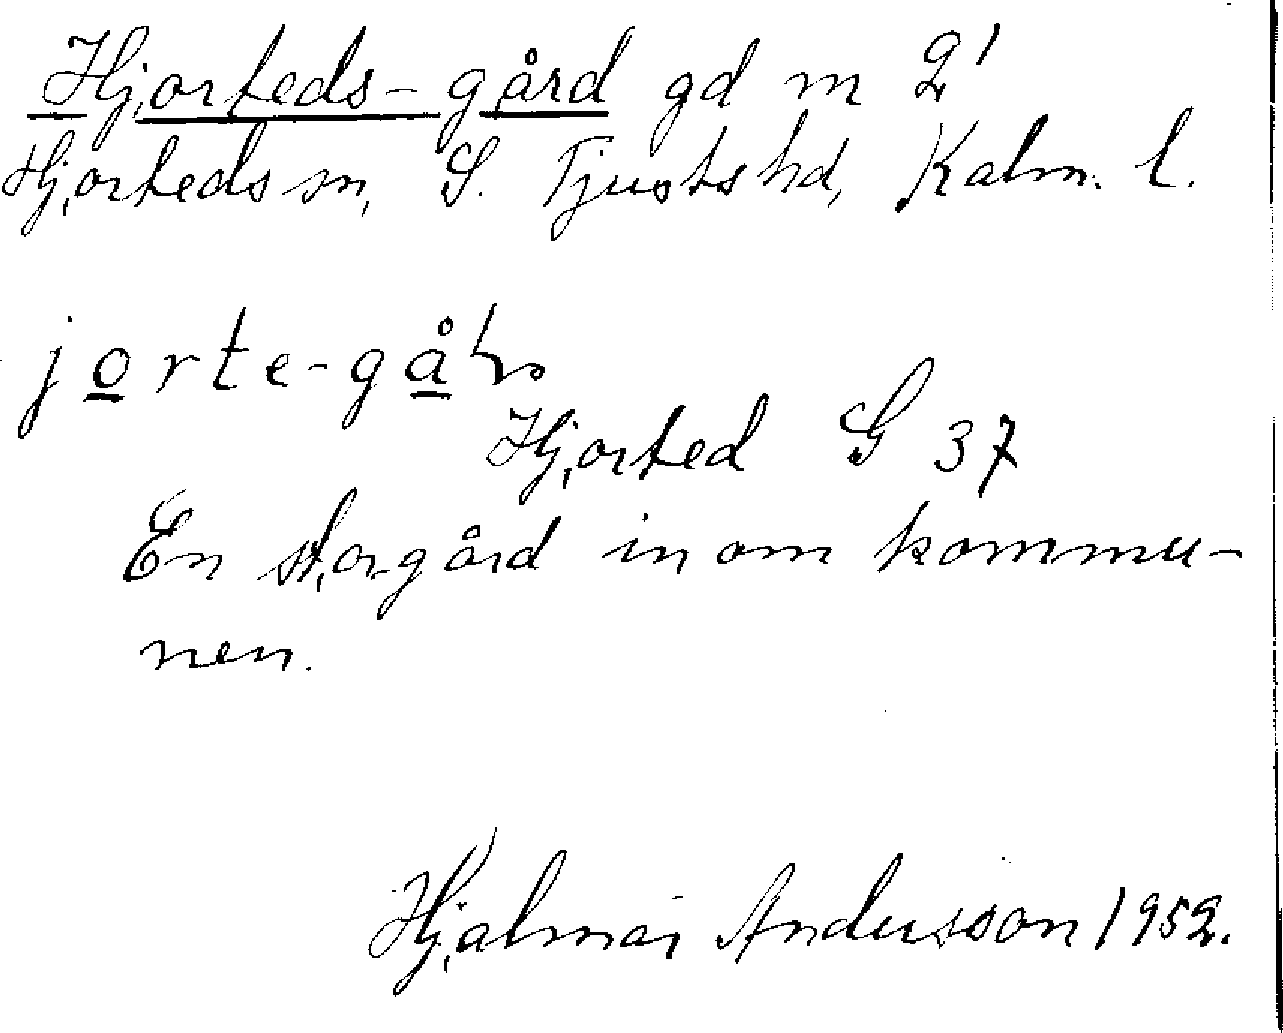 Hjorteds-gård gd m 2'
Hjorteds sn, S. Tjusts hd, Kalm. l.
jorte-gå
Hjorted S 37
En storgård inom kommu-
nen.
Hjalmar Andersson 1952.